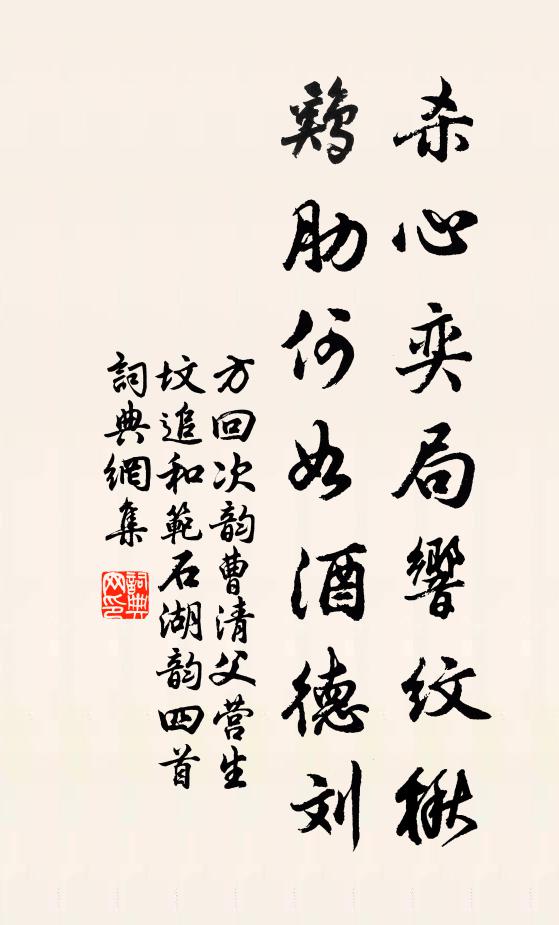 杀心奕局響紋楸
鷄肋何如酒德刘
方回次韵曹清父营生
坟追和範石湖韵四首
詞典網集
詞典
网印